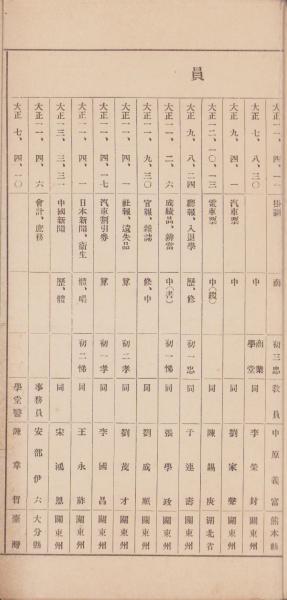 員
大正一一、四、一一 掛図 商 初三忠 教員 中原義富 熊本縣
大正七、八、三〇 中 商業學堂 同 李榮封 關東州
大正九、四、一 汽車票 中 同 劉家聲 關東州
大正一二、一〇、一三 電車票 中(級) 同 陳錫庚 湖北省
大正九、八、二四 聽報、入退學 歷、修 初一忠 同 于連壽 關東州
大正一一、二、六 成績品、辨當 中(書) 初一悌 同 張學政 關東州
大正一一、九、三〇 官報、雜誌 修、中 同 劉成順 關東州
大正一一、四、一 社報、遺失品 算 初二孝 同 劉茂才 關東州
大正一一、四、一七 汽車割引券 算 初一孝 同 李國昌 關東州
大正一一、四、一 日本新聞、衛生 體、唱 初二悌 同 王永 關東州
大正一三、三、三一 中國新聞 歷、體 同 宋鴻恩 關東州
大正一一、四、六 會計、庶務 事務員 安部伊六 大分縣
大正七、四、一〇 學堂醫 陳章哲 臺灣